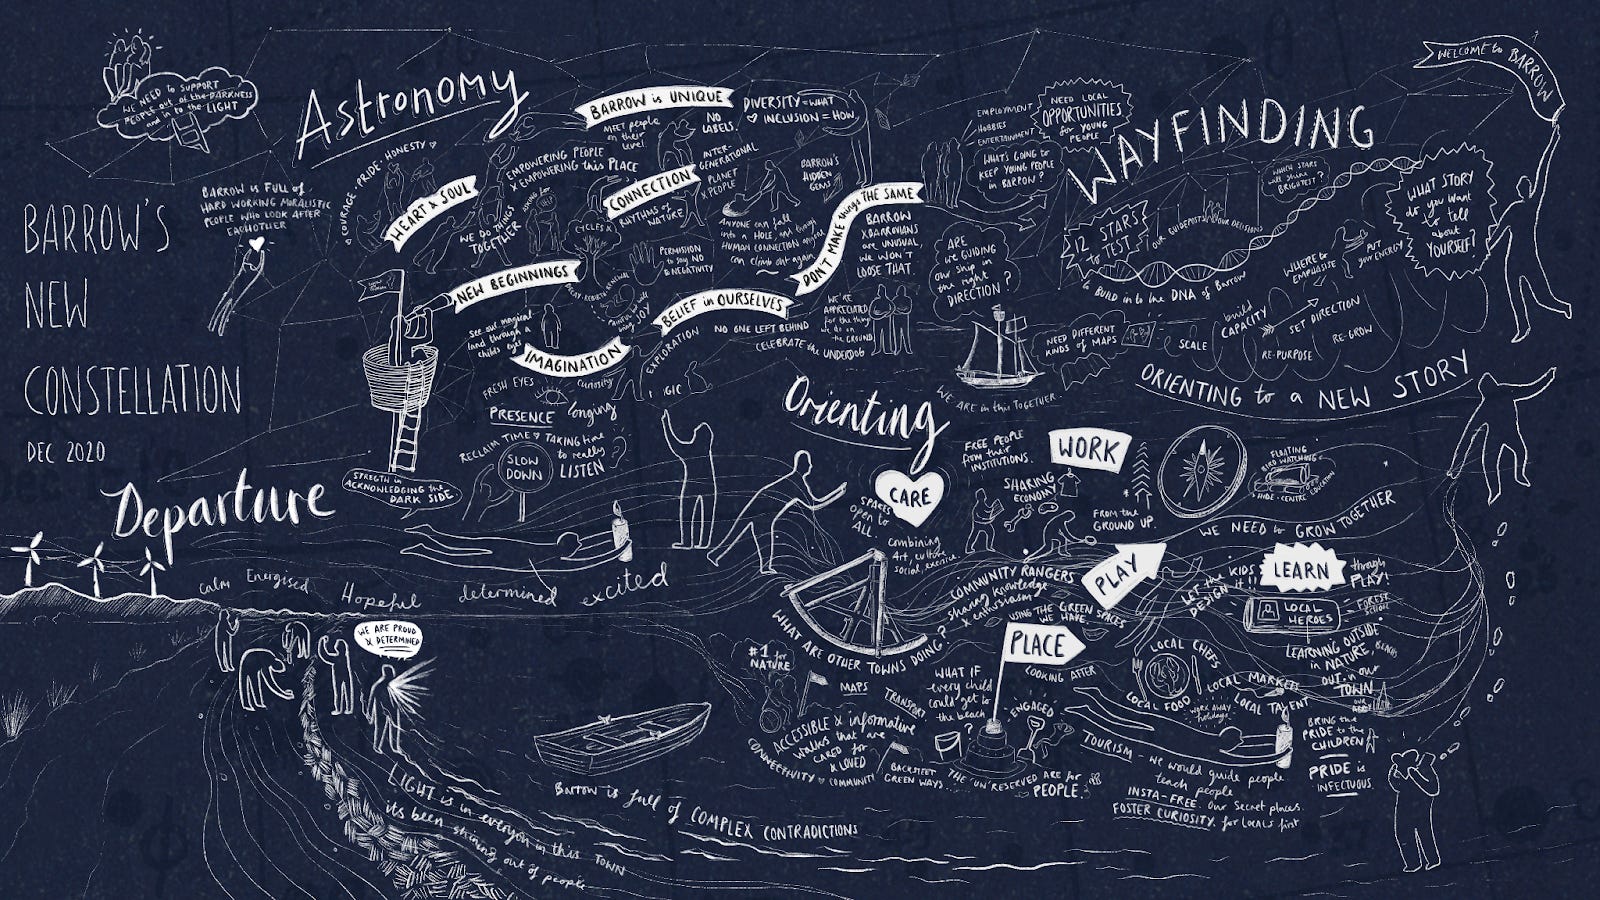 BARROW'S
NEW
CONSTELLATION
DEC 2020
WE NEED to SUPPORT
PEOPLE out of the DARKNESS
and in to the LIGHT
Astronomy
BARROW is FULL of
HARD WORKING MORALISTIC
PEOPLE WHO LOOK AFTER
EACHOTHER
COURAGE · PRIDE · HONESTY
HEART & SOUL
BARROW is UNIQUE
MEET people
on their
level.
NO
LABELS.
DIVERSITY = WHAT
INCLUSION = HOW
EMPOWERING PEOPLE
& EMPOWERING this PLACE
WE DO THINGS
TOGETHER
CONNECTION
RHYTHMS of
NATURE
INTER-
GENERATIONAL
PLANET
& PEOPLE
BARROW'S
HIDDEN
GEMS
ANYONE can fall
into a HOLE, and through
HUMAN CONNECTION anyone
can climb out again
DON'T MAKE things THE SAME
BARROW
& BARROVIANS
are UNUSUAL,
WE WON'T
LOOSE THAT.
NEW BEGINNINGS
CYCLES
DECAY · REBIRTH · RENEWAL
PERMISSION
to say NO
to NEGATIVITY
See our magical
land through a
childs eyes
BELIEF in OURSELVES
NO ONE LEFT BEHIND
CELEBRATE the UNDERDOG
WE'RE
APPRECIATED
for the things
we do on
the GROUND
IMAGINATION
EXPLORATION
FRESH EYES
curiosity
PRESENCE
longing
RECLAIM TIME
TAKING time
to really
LISTEN
?
SLOW
DOWN
STREGTH in
ACKNOWLEDGING the
DARK SIDE
EMPLOYMENT
HOBBIES
ENTERTAINMENT
NEED LOCAL
OPPORTUNITIES
for YOUNG
PEOPLE
WHAT'S GOING to
KEEP YOUNG PEOPLE
in BARROW?
WAYFINDING
WELCOME to BARROW
WHICH STARS
will shine
BRIGHTEST?
12 STARS
to TEST
OUR GUIDEPOSTS
OUR DECISIONS
to BUILD in to the DNA of Barrow
WHAT STORY
do you want
to tell
about
YOURSELF?
ARE
we GUIDING
our ship in
the right
DIRECTION?
WHERE to
EMPHASISE
PUT
your ENERGY
build
CAPACITY
SET DIRECTION
NEED DIFFERENT
KINDS of MAPS
SCALE
RE-PURPOSE
RE-GROW
WE ARE in this TOGETHER.
ORIENTING to a NEW STORY
Orienting
CARE
SPACES
open to
ALL.
combining
Art, culture,
social, exercise
FREE PEOPLE
from their
INSTITUTIONS.
WORK
SHARING
ECONOMY
FROM the
GROUND UP.
FLOATING
BIRD WATCHING
HIDE · CENTRE · EDUCATION
WE NEED to GROW TOGETHER
PLAY
LET the KIDS
DESIGN it!!
LEARN
through
PLAY!
LOCAL
HEROES
FOREST
SCHOOL
LEARNING OUTSIDE
in NATURE, BEACHES
OUT in our
TOWN
COMMUNITY RANGERS
sharing knowledge
& enthusiasm
USING THE GREEN SPACES
WE HAVE
PLACE
LOOKING AFTER
WHAT ARE OTHER TOWNS DOING?
#1 for
NATURE
MAPS
TRANSPORT
WHAT IF
every child
could get to
the beach
?
ENGAGED
ACCESSIBLE & informative
walks that are
CARED for
& LOVED
CONNECTIVITY
COMMUNITY
BACKSTREET
GREEN WAYS
THE 'UN'RESERVED ARE for
PEOPLE.
LOCAL CHEFS
LOCAL FOOD
LOCAL MARKETS
LOCAL TALENT
WORK AWAY
holidays
TOURISM - WE would guide people
teach people
INSTA-FREE. Our secret places.
FOSTER CURIOSITY. for LOCALS first
BRING the
PRIDE to the
CHILDREN
PRIDE is
INFECTUOUS.
Departure
calm
Energised
Hopeful
determined
excited
WE ARE PROUD
& DETERMINED
LIGHT is in everyone in this TOWN
its been shining out of people
Barrow is full of COMPLEX CONTRADICTIONS